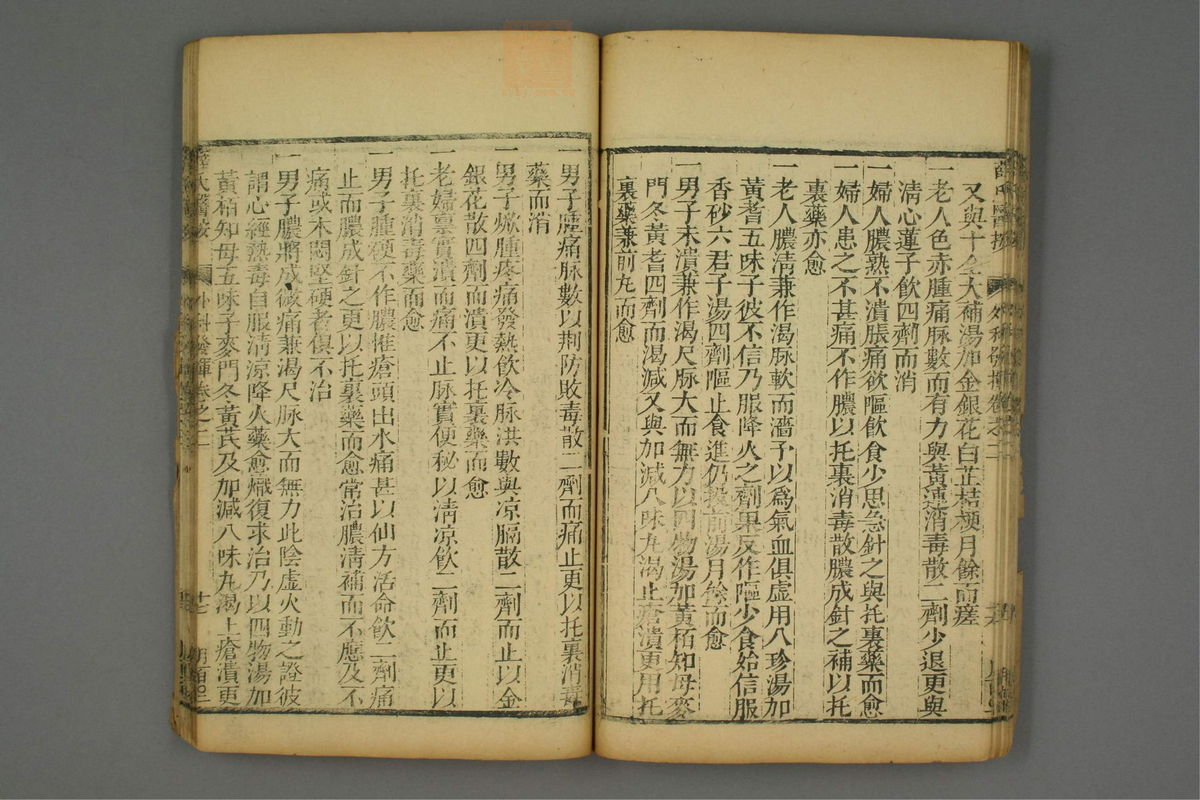 薛氏醫按 外科發揮卷之二
又與十全大補湯加金銀花白芷桔梗月餘而瘥
一老人色赤腫痛脉數而有力與黃連消毒散二劑少退更與
清心蓮子飲四劑而消
一婦人膿熟不潰脹痛欲嘔飲食少思急針之與托裏藥而愈
一婦人患之不甚痛不作膿以托裏消毒散膿成針之補以托
裏藥亦愈
一老人膿清兼作渴脉軟而濇予以爲氣血俱虛用八珍湯加
黃耆五味子彼不信乃服降火之劑果反作嘔少食始信服
香砂六君子湯四劑嘔止食進仍投前湯月餘而愈
一男子未潰兼作渴尺脉大而無力以四物湯加黃栢知母麥
門冬黃耆四劑而渴減又與加減八味丸渴止瘡潰更用托
裏藥兼前丸而愈
一男子腫痛脉數以荆防敗毒散二劑而痛止更以托裏消毒
藥而消
一男子焮腫疼痛發熱飲冷脉洪數與凉膈散二劑而止以金
銀花散四劑而潰更以托裏藥而愈
一老婦禀實潰而痛不止脉實便秘以清凉飲二劑而止更以
托裏消毒藥而愈
一男子腫硬不作膿惟瘡頭出水痛甚以仙方活命飲二劑痛
止而膿成針之更以托裏藥而愈常治膿清補而不應及不
痛或木悶堅硬者俱不治
一男子膿將成微痛兼渴尺脉大而無力此陰虛火動之證彼
謂心經熱毒自服清凉降火藥愈熾復求治乃以四物湯加
黃栢知母五味子麥門冬黃芪及加減八味丸渴止瘡潰更
薛氏醫按 外科發揮卷之二